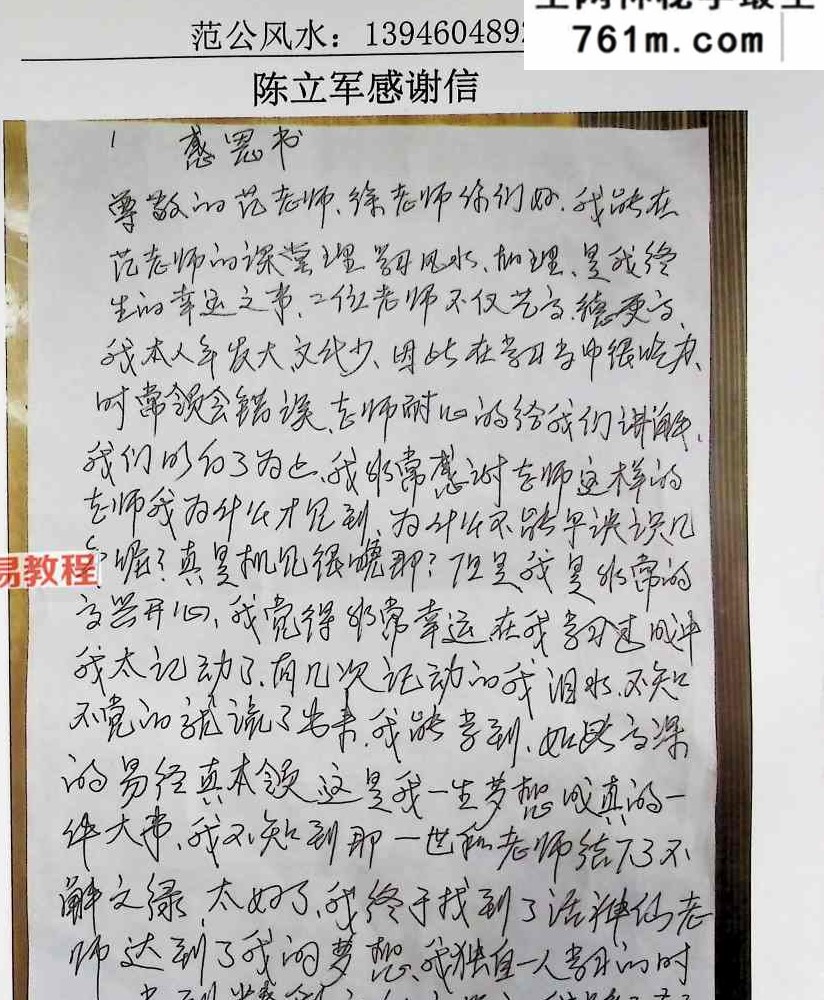 范公风水：1394604892
761m.com
陈立军感谢信
1 感恩书
尊敬的范老师、徐老师你们好、我能在
范老师的课堂理学习风水、加理、是我终
生的幸运之事、二位老师不仅艺高、德更高、
我本人年发大文化少、因此在学习当中很吃力、
时常领会错误、老师耐心的给我们讲解、
我们明白了为止、我非常感谢老师这样的
老师我为什么才见到、为什么不能早谈识几
年呢？真是机见很晚那？但是我是非常的
高兴开心、我觉得非常幸运在我学习过成中
我太记动了、有几次记动的我泪水、不知
不觉的就流了出来、我能学到、如此高深
的易经真本领、这是我一生梦想成真的一
件大事、我不知到那一世和老师结下了不
解之缘、太好了、我终于找到了活神仙老
师达到了我的梦想、我独自一人学习的时
易教程